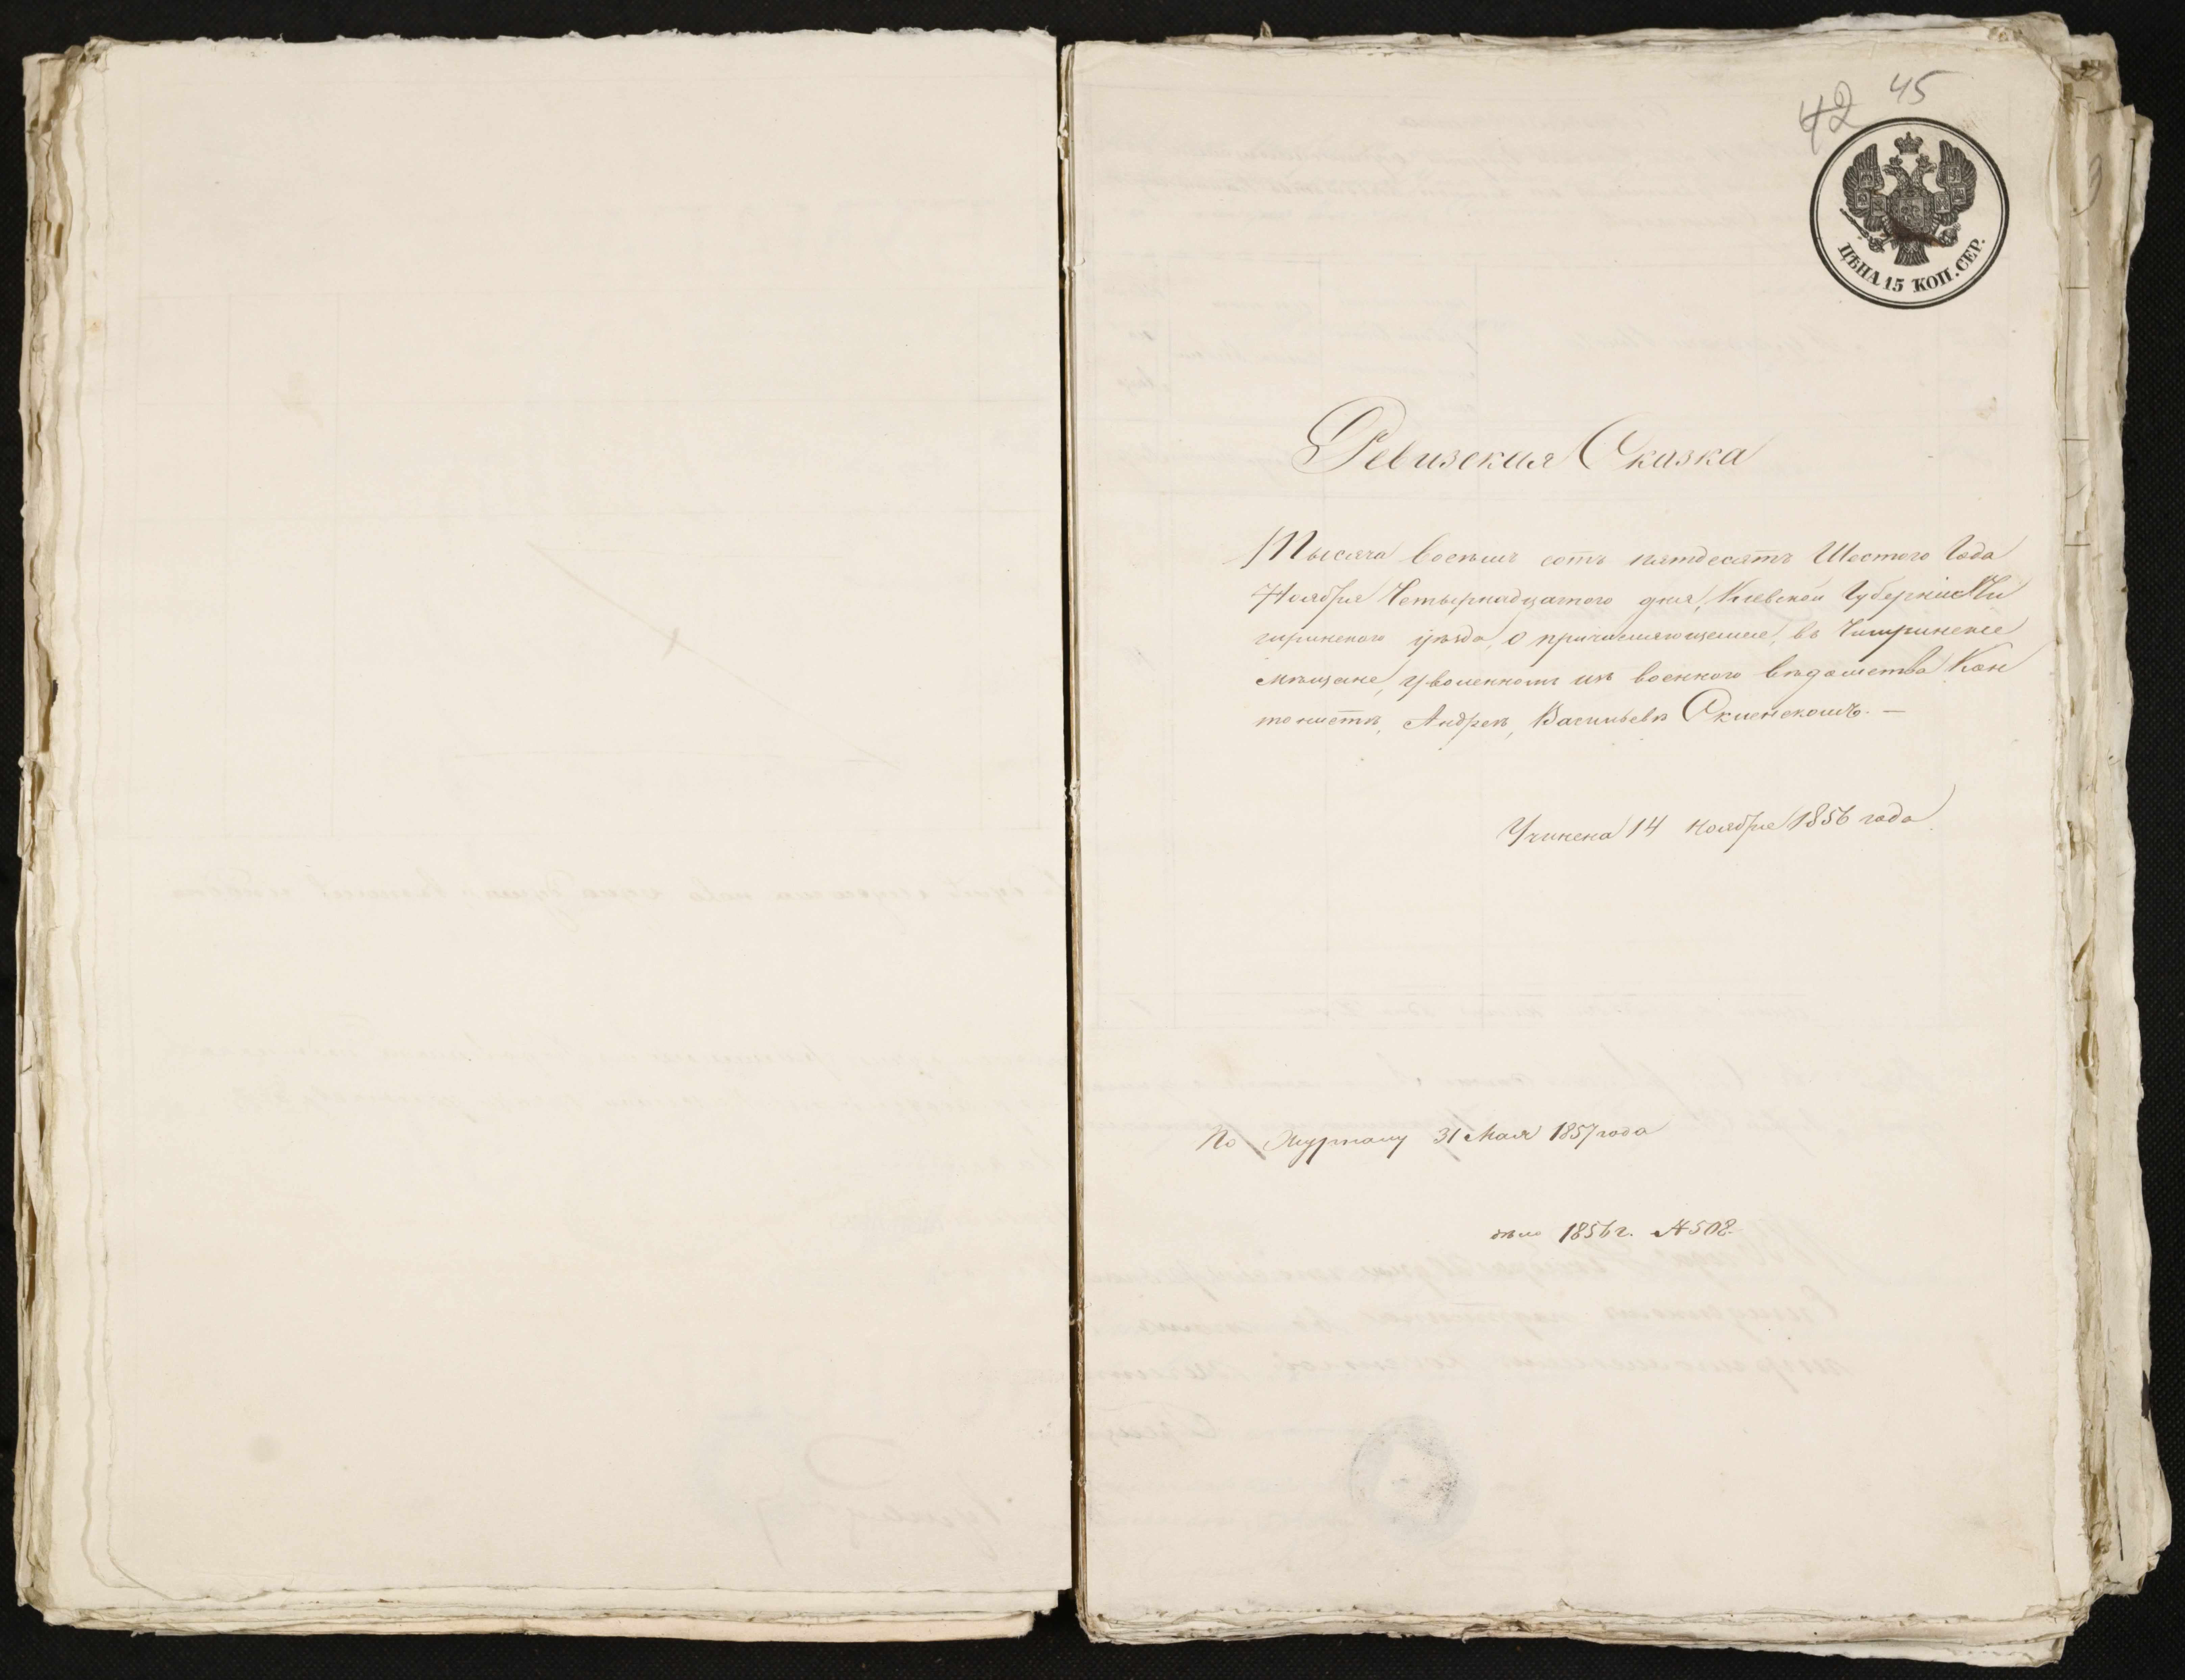 42 45
ЦѢНА 15 КОП. СЕР.
Ревизская Сказка
Тысяча восемь сотъ пятдесятъ Шестого Года
Ноября Четырнадцатого дня, Киевской Губерніи Чи
гиринского уѣзда, о причисляющемся, въ Чигиринскіе
мѣщане, уволенномъ изъ военного вѣдомства Кан
тонистѣ, Андреѣ, Васильевѣ
Учинена 14 Ноября 1856 года
По Журналу 31 Мая 1857 года
дѣло 1856 г. № 508.